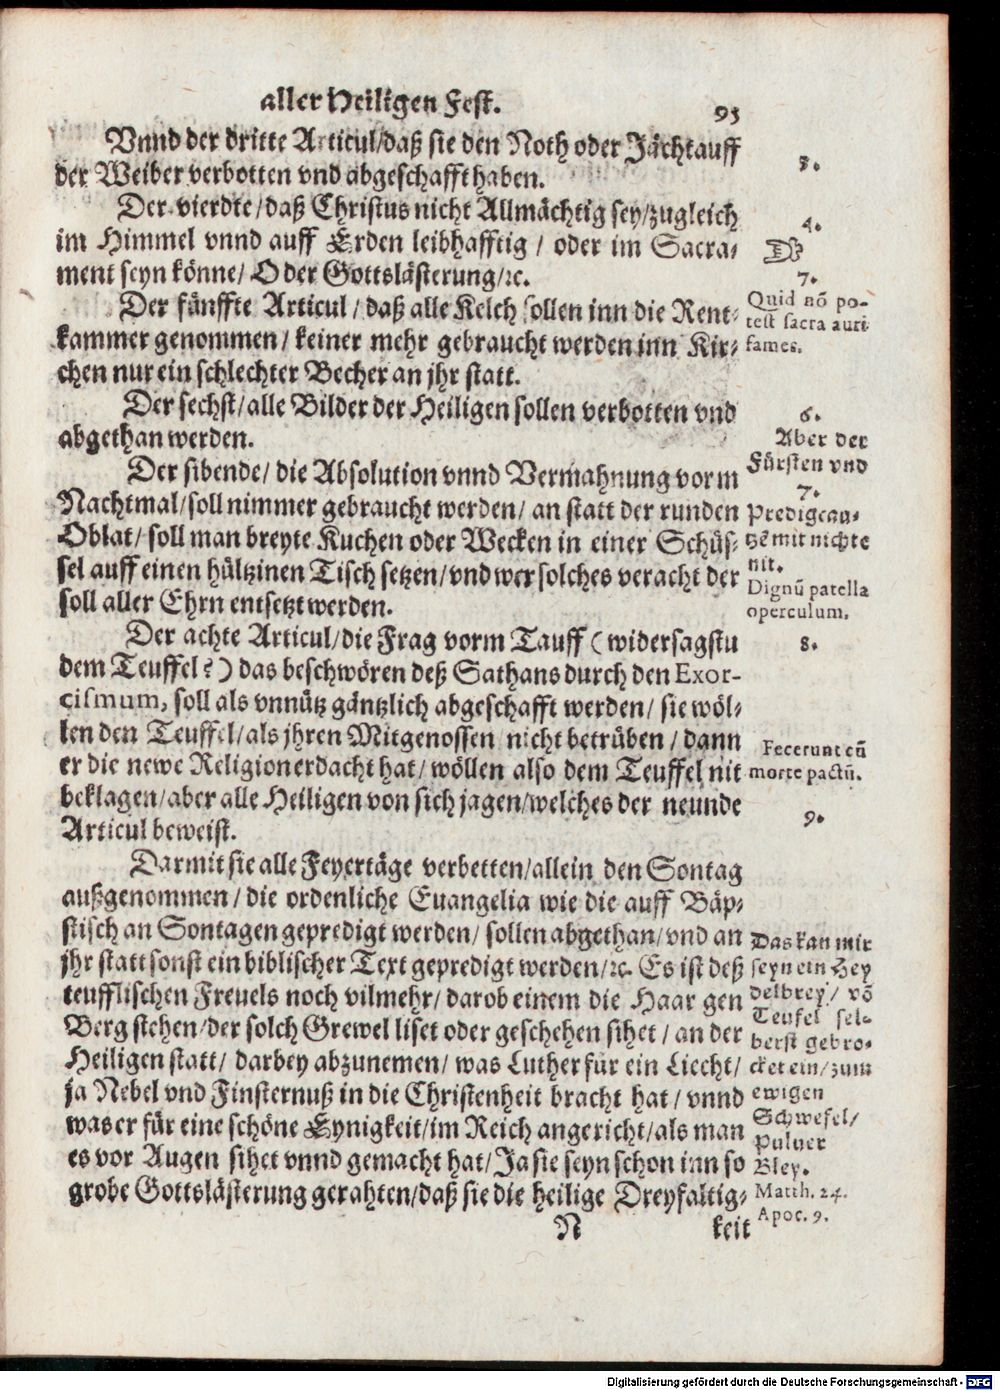 aller Heiligen Fest.
95
Vnnd der dritte Articul/daß sie den Noth oder Jächtauff
der Weiber verbotten vnd abgeschafft haben.
3.
Der vierdte/daß Christus nicht Allmächtig sey/zugleich
im Himmel vnnd auff Erden leibhafftig / oder im Sacra-
ment seyn könne/ O der Gottslästerung/ꝛc.
4.
Der fünffte Articul / daß alle Kelch sollen inn die Rent-
kammer genommen / keiner mehr gebraucht werden inn Kir-
chen nur ein schlechter Becher an jhr statt.
7.
Quid nõ po-
test sacra auri
fames.
Der sechst/alle Bilder der Heiligen sollen verbotten vnd
abgethan werden.
6.
Aber der
Fürsten vnd
Predigcan-
tzẽ mit nichte
nit.
Der sibende/ die Absolution vnnd Vermahnung vorm
Nachtmal/soll nimmer gebraucht werden/ an statt der runden
Oblat/ soll man breyte Kuchen oder Wecken in einer Schüs-
sel auff einen hültzinen Tisch setzen/vnd wer solches veracht der
soll aller Ehrn entsetzt werden.
7.
Dignũ patella
operculum.
Der achte Articul/die Frag vorm Tauff ( widersagstu
dem Teuffel?) das beschwören deß Sathans durch den Exor-
cismum, soll als vnnütz gäntzlich abgeschafft werden/ sie wöl-
len den Teuffel/als jhren Mitgenossen nicht betrüben / dann
er die newe Religion erdacht hat/ wöllen also dem Teuffel nit
beklagen/aber alle Heiligen von sich jagen/welches der neunde
Articul beweist.
8.
Fecerunt cũ
morte pactũ.
9.
Darmit sie alle Feyertäge verbetten/allein den Sontag
außgenommen / die ordenliche Euangelia wie die auff Bäp-
stisch an Sontagen gepredigt werden/ sollen abgethan/vnd an
jhr statt sonst ein biblischer Text gepredigt werden/ꝛc. Es ist deß
teufflischen Freuels noch vilmehr/darob einem die Haar gen
Berg stehen/der solch Grewel liset oder geschehen sihet / an der
Heiligen statt/ darbey abzunemen/ was Luther für ein Liecht/
ja Nebel vnd Finsternuß in die Christenheit bracht hat / vnnd
was er für eine schöne Eynigkeit/im Reich angericht/als man
es vor Augen sihet vnnd gemacht hat/ Ja sie seyn schon inn so
grobe Gottslästerung gerahten/daß sie die heilige Dreyfaltig-
Das kan mir
seyn ein Hey
delbrey/ võ
Teufel sel-
berst gebro-
cket ein/zum
ewigen
Schwefel/
Puluer
Bley.
Matth. 24.
Apoc. 9.
N
keit
Digitalisierung gefördert durch die Deutsche Forschungsgemeinschaft - DFG